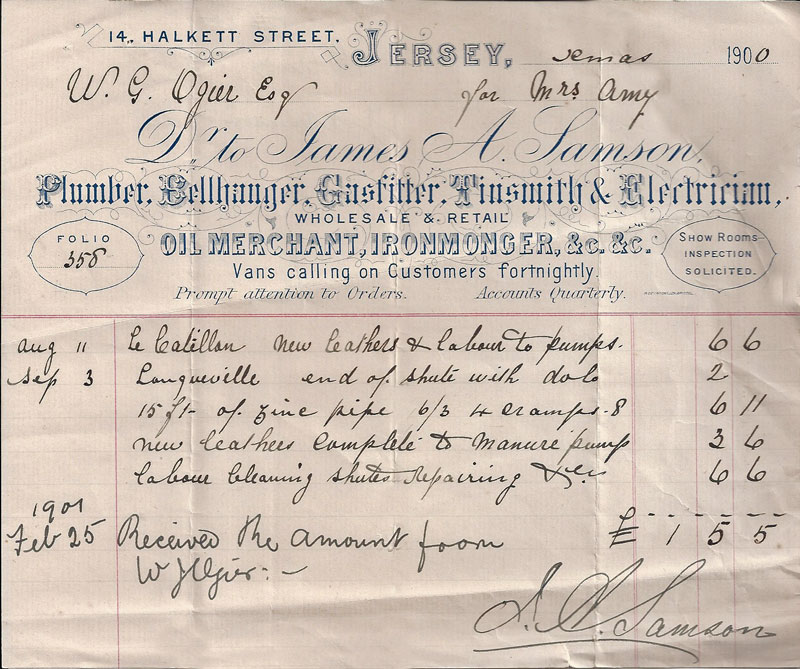 14, HALKETT STREET.
JERSEY, xmas 1900
W. G. Ogier Esq for Mrs Amy
Dr. to James A. Samson,
Plumber, Bellhanger, Gasfitter, Tinsmith & Electrician,
WHOLESALE & RETAIL
FOLIO 358
OIL MERCHANT, IRONMONGER, &c. &c.
SHOW ROOMS INSPECTION SOLICITED.
Vans calling on Customers fortnightly.
Prompt attention to Orders. Accounts Quarterly.
aug 11 Le Catillon new leathers & labour to pumps. 6 6
Sep 3 Longueville end of shute with do 2
15 ft of zinc pipe 6/3 4 cramps. 8 6 11
new leathers complete to manure pump 3 6
labour cleaning shutes repairing 6 6
1901
Feb 25 Received the amount from £ 1 5 5
W J Ogier:—
J. A. Samson